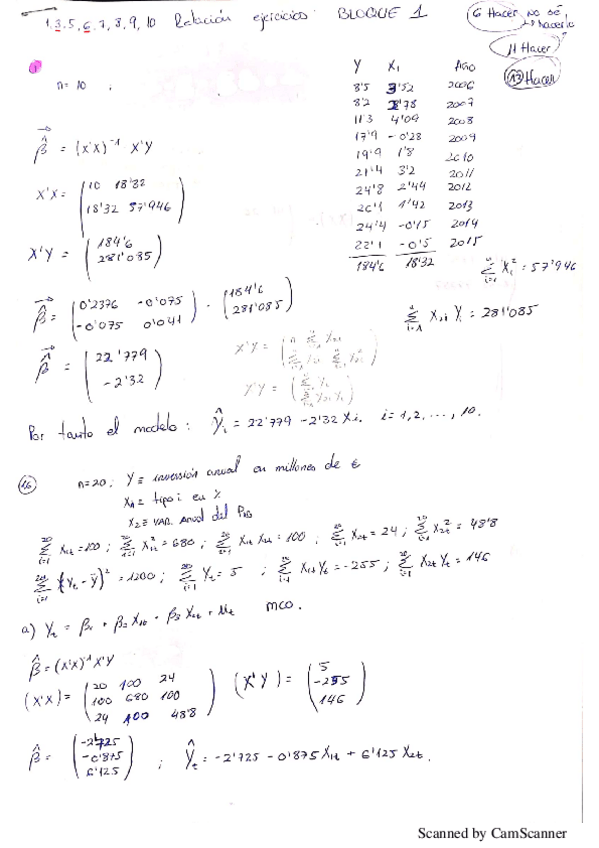 1,3,5,6,7,8,9,10 Relación ejercicios: BLOQUE 1
6 Hacer no sé hacerlo
11 Hacer
12 Hacer
1
n=10
Y X₁ Año
8'5 3'52 2006
8'2 2'78 2007
11'3 4'09 2008
17'9 -0'28 2009
19'9 1'8 2010
21'4 3'2 2011
24'8 2'44 2012
26'1 1'42 2013
24'4 -0'15 2014
22'1 -0'5 2015
184'6 18'32
β̂ = (X'X)⁻¹ X'Y
X'X = (10 18'32
18'32 57'946)
X'Y = (184'6
281'085)
∑ᵢ₌₁ Xᵢ² = 57'946
∑ᵢ₌₁ X₁ᵢ Yᵢ = 281'085
β̂ = (0'2376 -0'075
-0'075 0'041) · (184'6
281'085)
β̂ = (22'779
-2'32)
Por tanto el modelo: Ŷᵢ = 22'779 - 2'32 Xᵢ. i=1,2,...,10.
16
n=20; Y ≡ inversión anual en millones de €
X₁ ≡ tipo i en %
X₂ ≡ var. anual del PIB
∑ X₁t = 100; ∑ X₁t² = 680; ∑ X₁t X₂t = 100; ∑ X₂t = 24; ∑ X₂t² = 48'8
∑ (Yt - Ȳ)² = 1200; ∑ Yt = 5; ∑ X₁t Yt = -255; ∑ X₂t Yt = 146
a) Yt = β₁ + β₂ X₁t + β₃ X₂t + Ut MCO.
β̂ = (X'X)⁻¹ X'Y
(X'X) = (20 100 24
100 680 100
24 100 48'8)
(X'Y) = (5
-255
146)
β̂ = (-2'725
-0'875
6'125) ; Ŷt = -2'725 - 0'875 X₁t + 6'125 X₂t.
Scanned by CamScanner